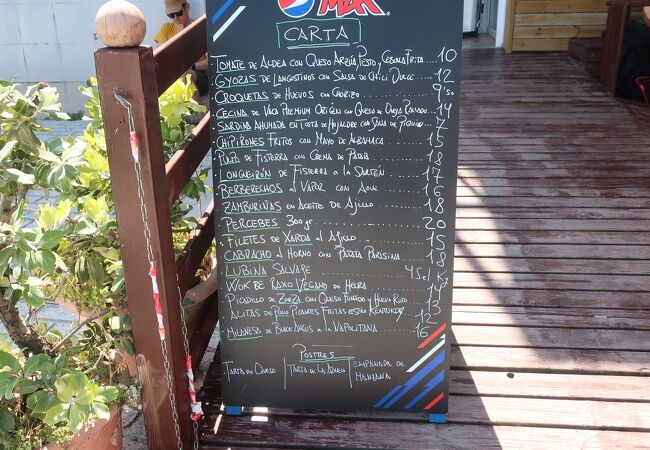 pepsi MAX
CARTA
TOMATE DE ALDEA CON QUESO ARZÚA, PESTO Y CEBOLLA FRITA 10
GYOZAS DE LANGOSTINOS CON SALSA DE CHILI DULCE 12
CROQUETAS DE HUEVOS CON CHORIZO 9'50
CECINA DE VACA PREMIUM ORIGEN CON QUESO DE OVEJA RALLADO 14
SARDINA AHUMADA EN TOSTA DE HOJALDRE CON SALSA DE PIQUILLO 7
CHIPIRONES FRITOS CON MAYO DE ALBAHACA 15
PULPO DE FISTERRA CON CREMA DE PATATA 18
LONGUEIRÓN DE FISTERRA A LA SARTÉN 17
BERBERECHOS AL VAPOR CON 16
ZAMBURIÑAS EN ACEITE DE AJILLO 18
PERCEBES 300 gr 20
FILETES DE XARDA AL AJILLO 15
CABRACHO AL HORNO CON PATATA PARISINA 18
LUBINA SALVAJE 45 el K
WOK DE RAXO VEGANO DE HEURA 14
PICADILLO DE ZORZA CON QUESO FUNDIDO Y HUEVO ROTO 13
ALITAS DE POLLO PICANTES FRITAS ESTILO KENTUCKY 12
MILANESA DE BLACK ANGUS A LA NAPOLITANA 16
POSTRES
TARTA DE QUESO TARTA DE LA ABUELA EMPANADA DE
MANZANA